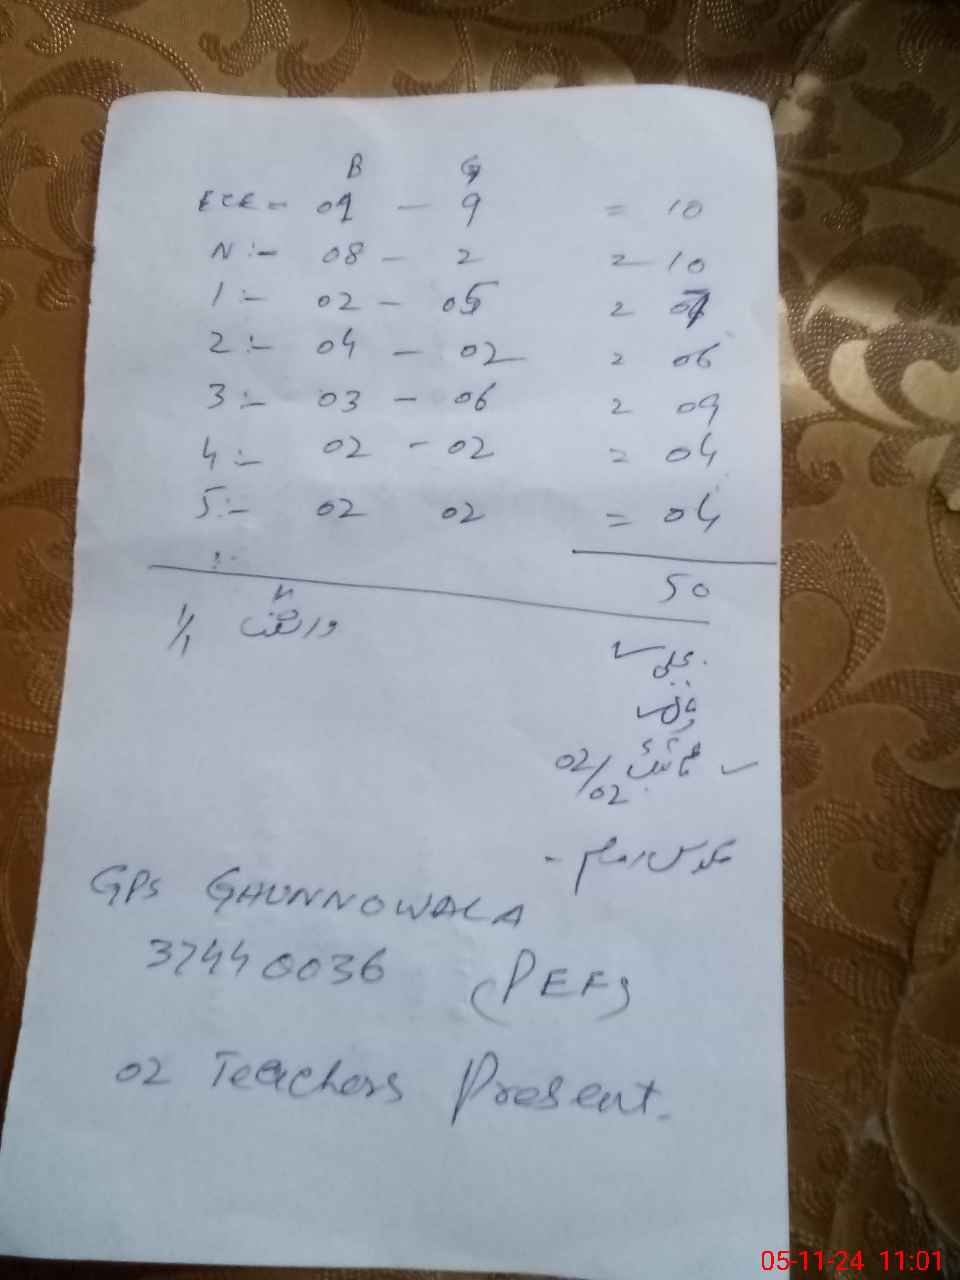 B G
ECE - 01 - 9 = 10
N :- 08 - 2 = 10
1 :- 02 - 05 = 07
2 :- 04 - 02 = 06
3 :- 03 - 06 = 09
4 :- 02 - 02 = 04
5 :- 02 02 = 04
50
1/1
بجلی ✓
✓
02/02 ✓
GPS GHUNNOWALA
37440036 (PEF)
02 Teachers Present.
05-11-24 11:01